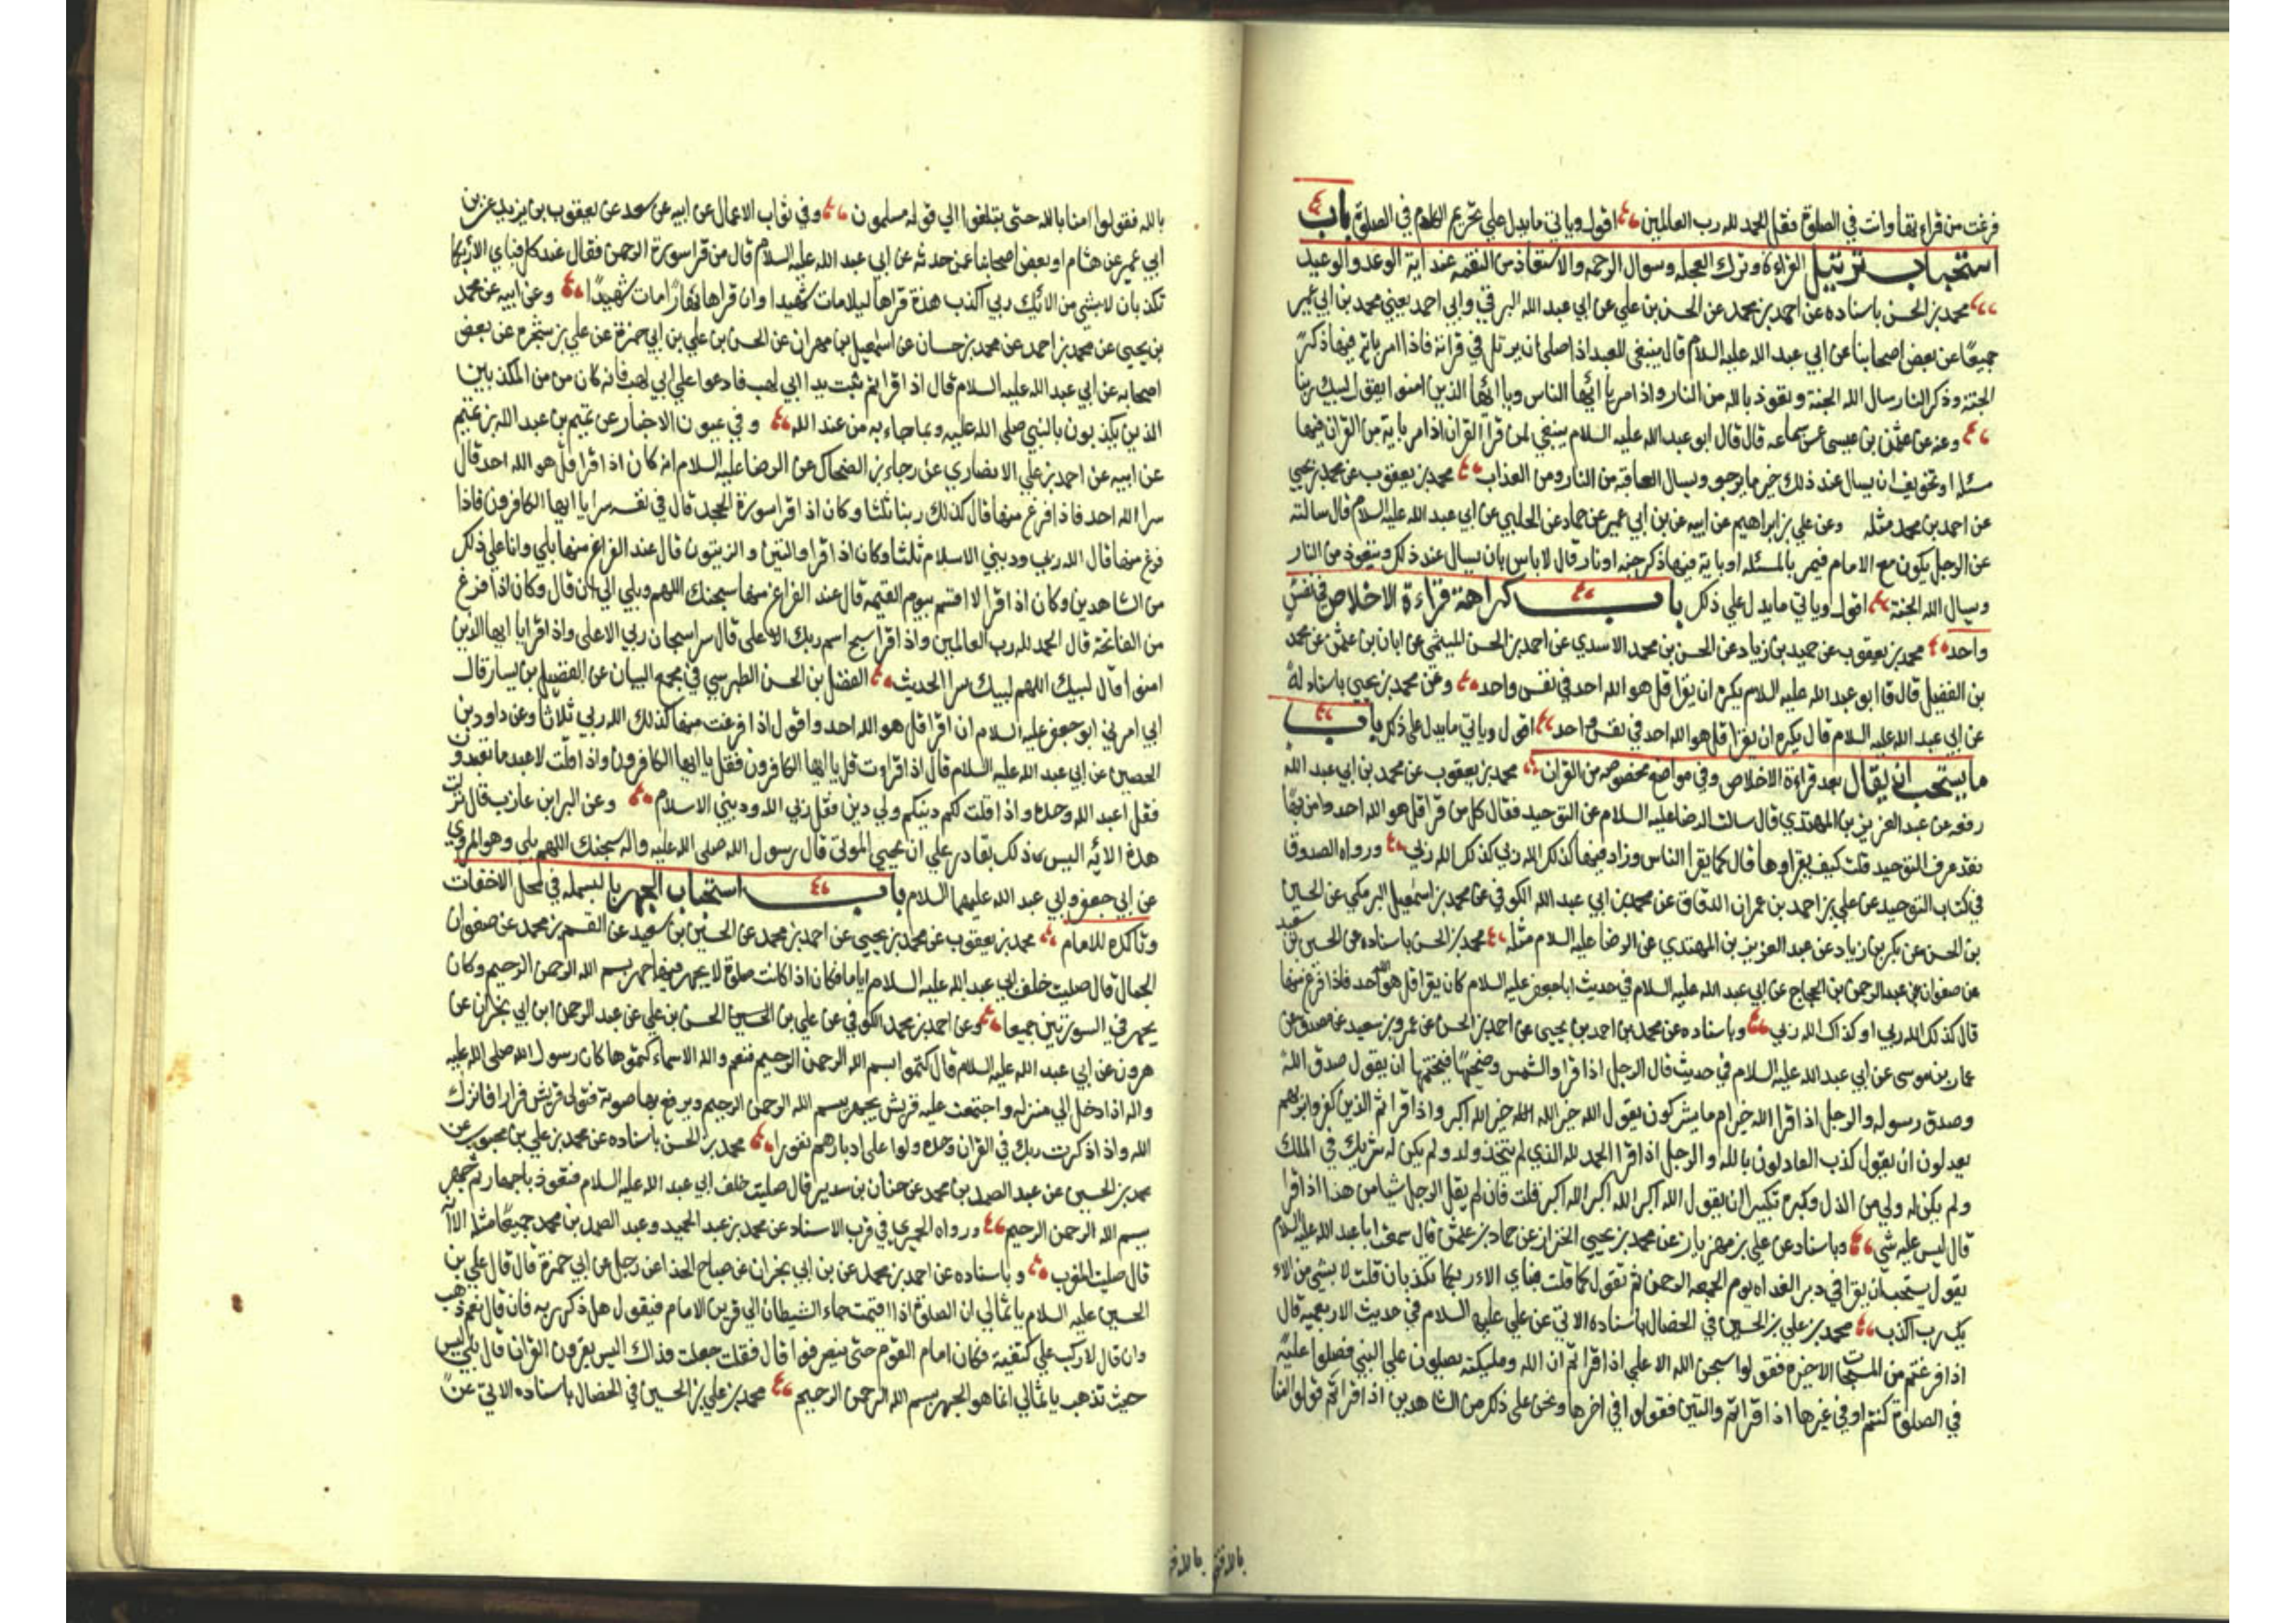 فرغت من قراءتها وانت في الصلوة فقل الحمد لله رب العالمين اقول وياتي ما يدل علي تحريم الكلام في الصلوة باب
استحباب ترتيل القراءة وترك العجلة وسوال الرحمة والاستعاذة من النقمة عند اية الوعد والوعيد
محمد بن الحسن باسناده عن احمد بن محمد عن الحسن بن علي عن ابي عبد الله البرقي وابي احمد يعني محمد بن ابي عمير
جميعا عن بعض اصحابنا عن ابي عبد الله عليه السلام قال ينبغي للعبد اذا صلي ان يرتل في قراته فاذا مر باية فيها ذكر
الجنة وذكر النار سال الله الجنة وتعوذ بالله من النار واذا مر يا ايها الناس ويا ايها الذين امنوا يقول لبيك ربنا
وعنه عن عثمن بن عيسي عن سماعه قال قال ابو عبد الله عليه السلام ينبغي لمن قرا القران اذا مر باية من القران فيها
مسئلة او تخويف ان يسال عند ذلك خير ما يرجو ويسال العافية من النار ومن العذاب محمد بن يعقوب عن محمد بن يحيي
عن احمد بن محمد مثله وعن علي بن ابراهيم عن ابيه عن بن ابي عمير عن حماد عن الحلبي عن ابي عبد الله عليه السلام قال سالته
عن الرجل يكون مع الامام فيمر بالمسئله او باية فيها ذكر جنه او نار قال لا باس بان يسال عند ذلك ويتعوذ من النار
ويسال الله الجنة اقول وياتي ما يدل علي ذلك باب كراهة قراءة الاخلاص في نفس
واحد محمد بن يعقوب عن حميد بن زياد عن الحسن بن محمد الاسدي عن احمد بن الحسن الميثمي عن ابان بن عثمن عن محمد
بن الفضيل قال قا ابو عبد الله عليه السلام يكره ان يقرا قل هو الله احد في نفس واحد وعن محمد بن يحيي باسناد له
عن ابي عبد الله عليه السلام قال يكره ان يقرا قل هو الله احد في نفس واحد اقول وياتي ما يدل علي ذلك باب
ما يستحب ان يقال بعد قراءة الاخلاص وفي مواضع مخصوصه من القران محمد بن يعقوب عن محمد بن ابي عبد الله
رفعه عن عبد العزيز بن المهتدي قال سالت الرضا عليه السلام عن التوحيد فقال كل من قرا قل هو الله احد وامن بها
فقد عرف التوحيد قلت كيف يقراوها قال كما يقرا الناس وزاد فيها كذلك الله ربي كذلك الله ربي ورواه الصدوق
في كتاب التوحيد عن علي بن احمد بن عمران الدقاق عن محمد بن ابي عبد الله الكوفي عن محمد بن اسمعيل البرمكي عن الحسين
بن الحسن عن بكر بن زياد عن عبد العزيز بن المهتدي عن الرضا عليه السلام مثله محمد بن الحسن باسناده عن الحسين بن سعيد
عن صفوان عن عبد الرحمن بن الحجاج عن ابي عبد الله عليه السلام في حديث ابا جعفر عليه السلام كان يقرا قل هو الله احد فاذا فرغ منها
قال كذلك الله ربي او كذاك الله ربي وباسناده عن محمد بن احمد بن يحيي عن احمد بن الحسن عن عمرو بن سعيد عن مصدق عن
عمار بن موسي عن ابي عبد الله عليه السلام في حديث قال الرجل اذا قرا والشمس وضحيها فيختمها ان يقول صدق الله
وصدق رسوله والرجل اذا قرا الله خير ام ما يشركون يقول الله خير الله خير الله اكبر واذا قرا ثم الذين كفروا بربهم
يعدلون ان يقول كذب العادلون بالله والرجل اذا قرا الحمد لله الذي لم يتخذ ولدا ولم يكن له شريك في الملك
ولم يكن له ولي من الذل وكبره تكبيرا ان يقول الله اكبر الله اكبر الله اكبر قلت فان لم يقل الرجل شيا من هذا اذا قرا
قال ليس عليه شي وباسناده عن علي بن مهزيار عن محمد بن يحيي الخزاز عن حماد بن عثمن قال سمعت ابا عبد الله عليه السلام
يقول يستحب ان يقرا في دبر الغداه يوم الجمعه الرحمن ثم تقول كلما قلت فباي الاء ربكما تكذبان قلت لا بشي من الاء
يك رب اكذب محمد بن علي بن الحسين في الخصال باسناده الاتي عن علي عليه السلام في حديث الاربعمية قال
اذا فرغتم من المسبحات الاخيره فقولوا سبحن الله الاعلي اذا قراتم ان الله ومليكته يصلون علي النبي فصلوا عليه
في الصلوة كنتم او في غيرها اذا قراتم والتين فقولوا في اخرها ونحن علي ذلك من الشاهدين اذا قراتم قولوا امنا
بالله فقولوا امنا بالله حتي تبلغوا الي قوله مسلمون وفي ثواب الاعمال عن ابيه عن سعد عن يعقوب بن يزيد عن بن
ابي عمير عن هشام او بعض اصحابنا عمن حدثه عن ابي عبد الله عليه السلام قال من قرا سورة الرحمن فقال عند كل فباي الاء ربكما
تكذبان لا بشي من الائك ربي اكذب هذه قراها ليلا مات شهيدا وان قراها نهارا مات شهيدا وعن ابيه عن محمد
بن يحيي عن محمد بن احمد عن محمد بن حسان عن اسمعيل بن مهران عن الحسن بن علي بن ابي حمزة عن علي بن شجره عن بعض
اصحابه عن ابي عبد الله عليه السلام قال اذا قراتم تبت يدا ابي لهب فادعوا علي ابي لهب فانه كان من من المكذبين
الذين يكذبون بالنبي صلي الله عليه وبما جاء به من عند الله وفي عيون الاخبار عن تميم بن عبد الله بن تميم
عن ابيه عن احمد بن علي الانصاري عن رجاء بن الضحاك عن الرضا عليه السلام انه كان اذا قرا قل هو الله احد قال
سرا الله احد فاذا فرغ منها قال كذلك ربنا ثلثا وكان اذا قرا سورة الجحد قال في نفسه سرا يا ايها الكافرون فاذا
فرغ منها قال الله ربي وديني الاسلام ثلثا وكان اذا قرا والتين والزيتون قال عند الفراغ منها بلي وانا علي ذلك
من الشاهدين وكان اذا قرا لا اقسم بيوم القيمه قال عند الفراغ منها سبحنك اللهم وبلي الي ان قال وكان اذا فرغ
من الفاتحة قال الحمد لله رب العالمين واذا قرا سبح اسم ربك الاعلي قال سرا سبحان ربي الاعلي واذا قرا يا ايها الذين
امنوا قال لبيك اللهم لبيك سرا الحديث الفضل بن الحسن الطبرسي في مجمع البيان عن الفضيل بن يسار قال
ابي امرني ابو جعفر عليه السلام ان اقرا قل هو الله احد واقول اذا فرغت منها كذلك الله ربي ثلاثا وعن داود بن
الحصين عن ابي عبد الله عليه السلام قال اذا قراوت قل يا ايها الكافرون فقل يا ايها الكافرون واذا قلت لا عبد ما تعبدون
فقل اعبد الله وحده واذا قلت لكم دينكم ولي دين فقل ربي الله وديني الاسلام وعن البرا بن عازب قال نزلت
هذه الايه اليس ذلك بقادر علي ان يحيي الموتي قال رسول الله صلي الله عليه واله سبحنك اللهم بلي وهو المروي
عن ابي جعفر وابي عبد الله عليهما السلام باب استحباب الجهر بالبسمله في محل الاخفات
وتاكده للامام محمد بن يعقوب عن محمد بن يحيي عن احمد بن محمد عن الحسين بن سعيد عن القسم بن محمد عن صفوان
الجمال قال صليت خلف ابي عبد الله عليه السلام اياما فكان اذا كانت صلوة لا يجهر فيها جهر بسم الله الرحمن الرحيم وكان
يجهر في السورتين جميعا وعن احمد بن محمد الكوفي عن علي بن الحسين الحسن بن علي عن عبد الرحمن ابن ابي نجران عن
هرون عن ابي عبد الله عليه السلام قال كتموا بسم الله الرحمن الرحيم فنعم والله الاسماء كتموها كان رسول الله صلي الله عليه
واله اذا دخل الي منزله واجتمعت عليه قريش يجهر ببسم الله الرحمن الرحيم ويرفع بها صوته فتولي قريش فرارا فانزل
الله واذا ذكرت ربك في القران وحده ولوا علي ادبارهم نفورا محمد بن الحسن باسناده عن محمد بن علي بن محبوب عن
محمد بن الحسين عن عبد الصمد بن محمد عن حنان بن سدير قال صليت خلف ابي عبد الله عليه السلام فتعوذ باجهار ثم جهر
ببسم الله الرحمن الرحيم ورواه الحميري في قرب الاسناد عن محمد بن عبد الحميد وعبد الصمد بن محمد جميعا مثله الا انه
قال صليت المغرب وباسناده عن احمد بن محمد عن بن ابي نجران عن صباح الحذا عن رجل عن ابي حمزة قال قال علي بن
الحسين عليه السلام يا ثمالي ان الصلوة اذا اقيمت جاء الشيطان الي قرين الامام فيقول هل ذكر ربه فان قال نعم ذهب
وان قال لا ركب علي كتفيه فكان امام القوم حتي ينصرفوا قال فقلت جعلت فداك اليس يقرون القران قال بلي ليس
حيث تذهب يا ثمالي انما هو الجهر ببسم الله الرحمن الرحيم محمد بن علي بن الحسين في الخصال باسناده الاتي عن